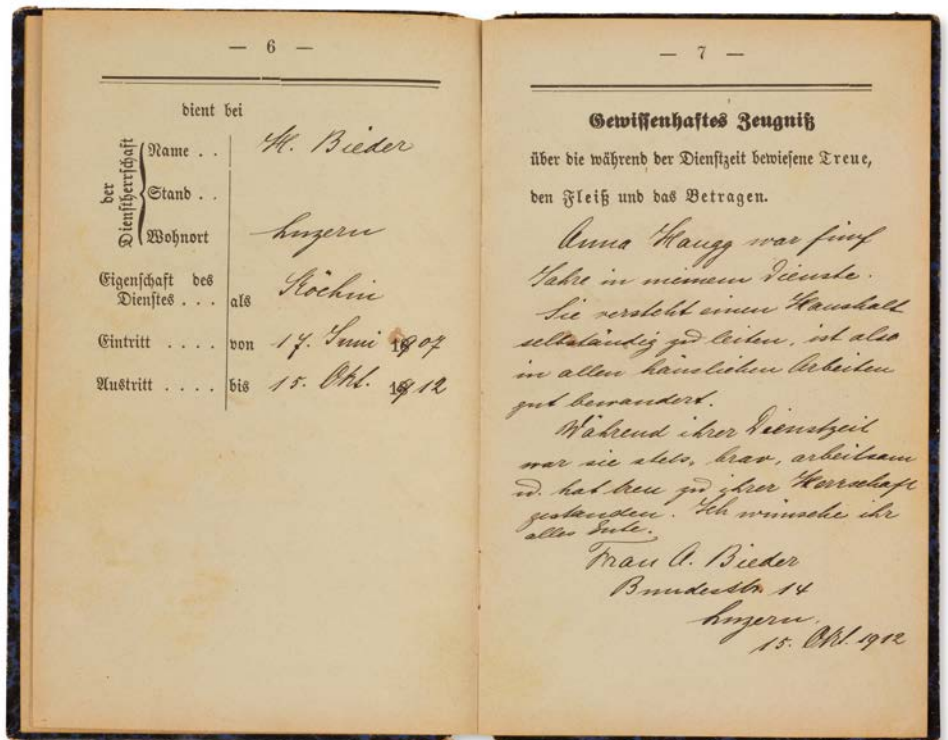 — 6 —
dient bei
der Dienstherrschaft
Name . . H. Bieder
Stand . .
Wohnort Luzern
Eigenschaft des
Dienstes . . . als Köchin
Eintritt . . . . von 17. Juni 1907
Austritt . . . . bis 15. Okt. 1912
— 7 —
Gewissenhaftes Zeugniß
über die während der Dienstzeit bewiesene Treue,
den Fleiß und das Betragen.
Anna Haugg war fünf
Jahre in meinem Dienste.
Sie versteht einen Haushalt
selbständig zu leiten, ist also
in allen häuslichen Arbeiten
gut bewandert.
Während ihrer Dienstzeit
war sie stets, brav, arbeitsam
u. hat treu zu ihrer Herrschaft
gestanden. Ich wünsche ihr
alles Gute.
Frau A. Bieder
Bundesstr. 14
Luzern.
15. Okt. 1912